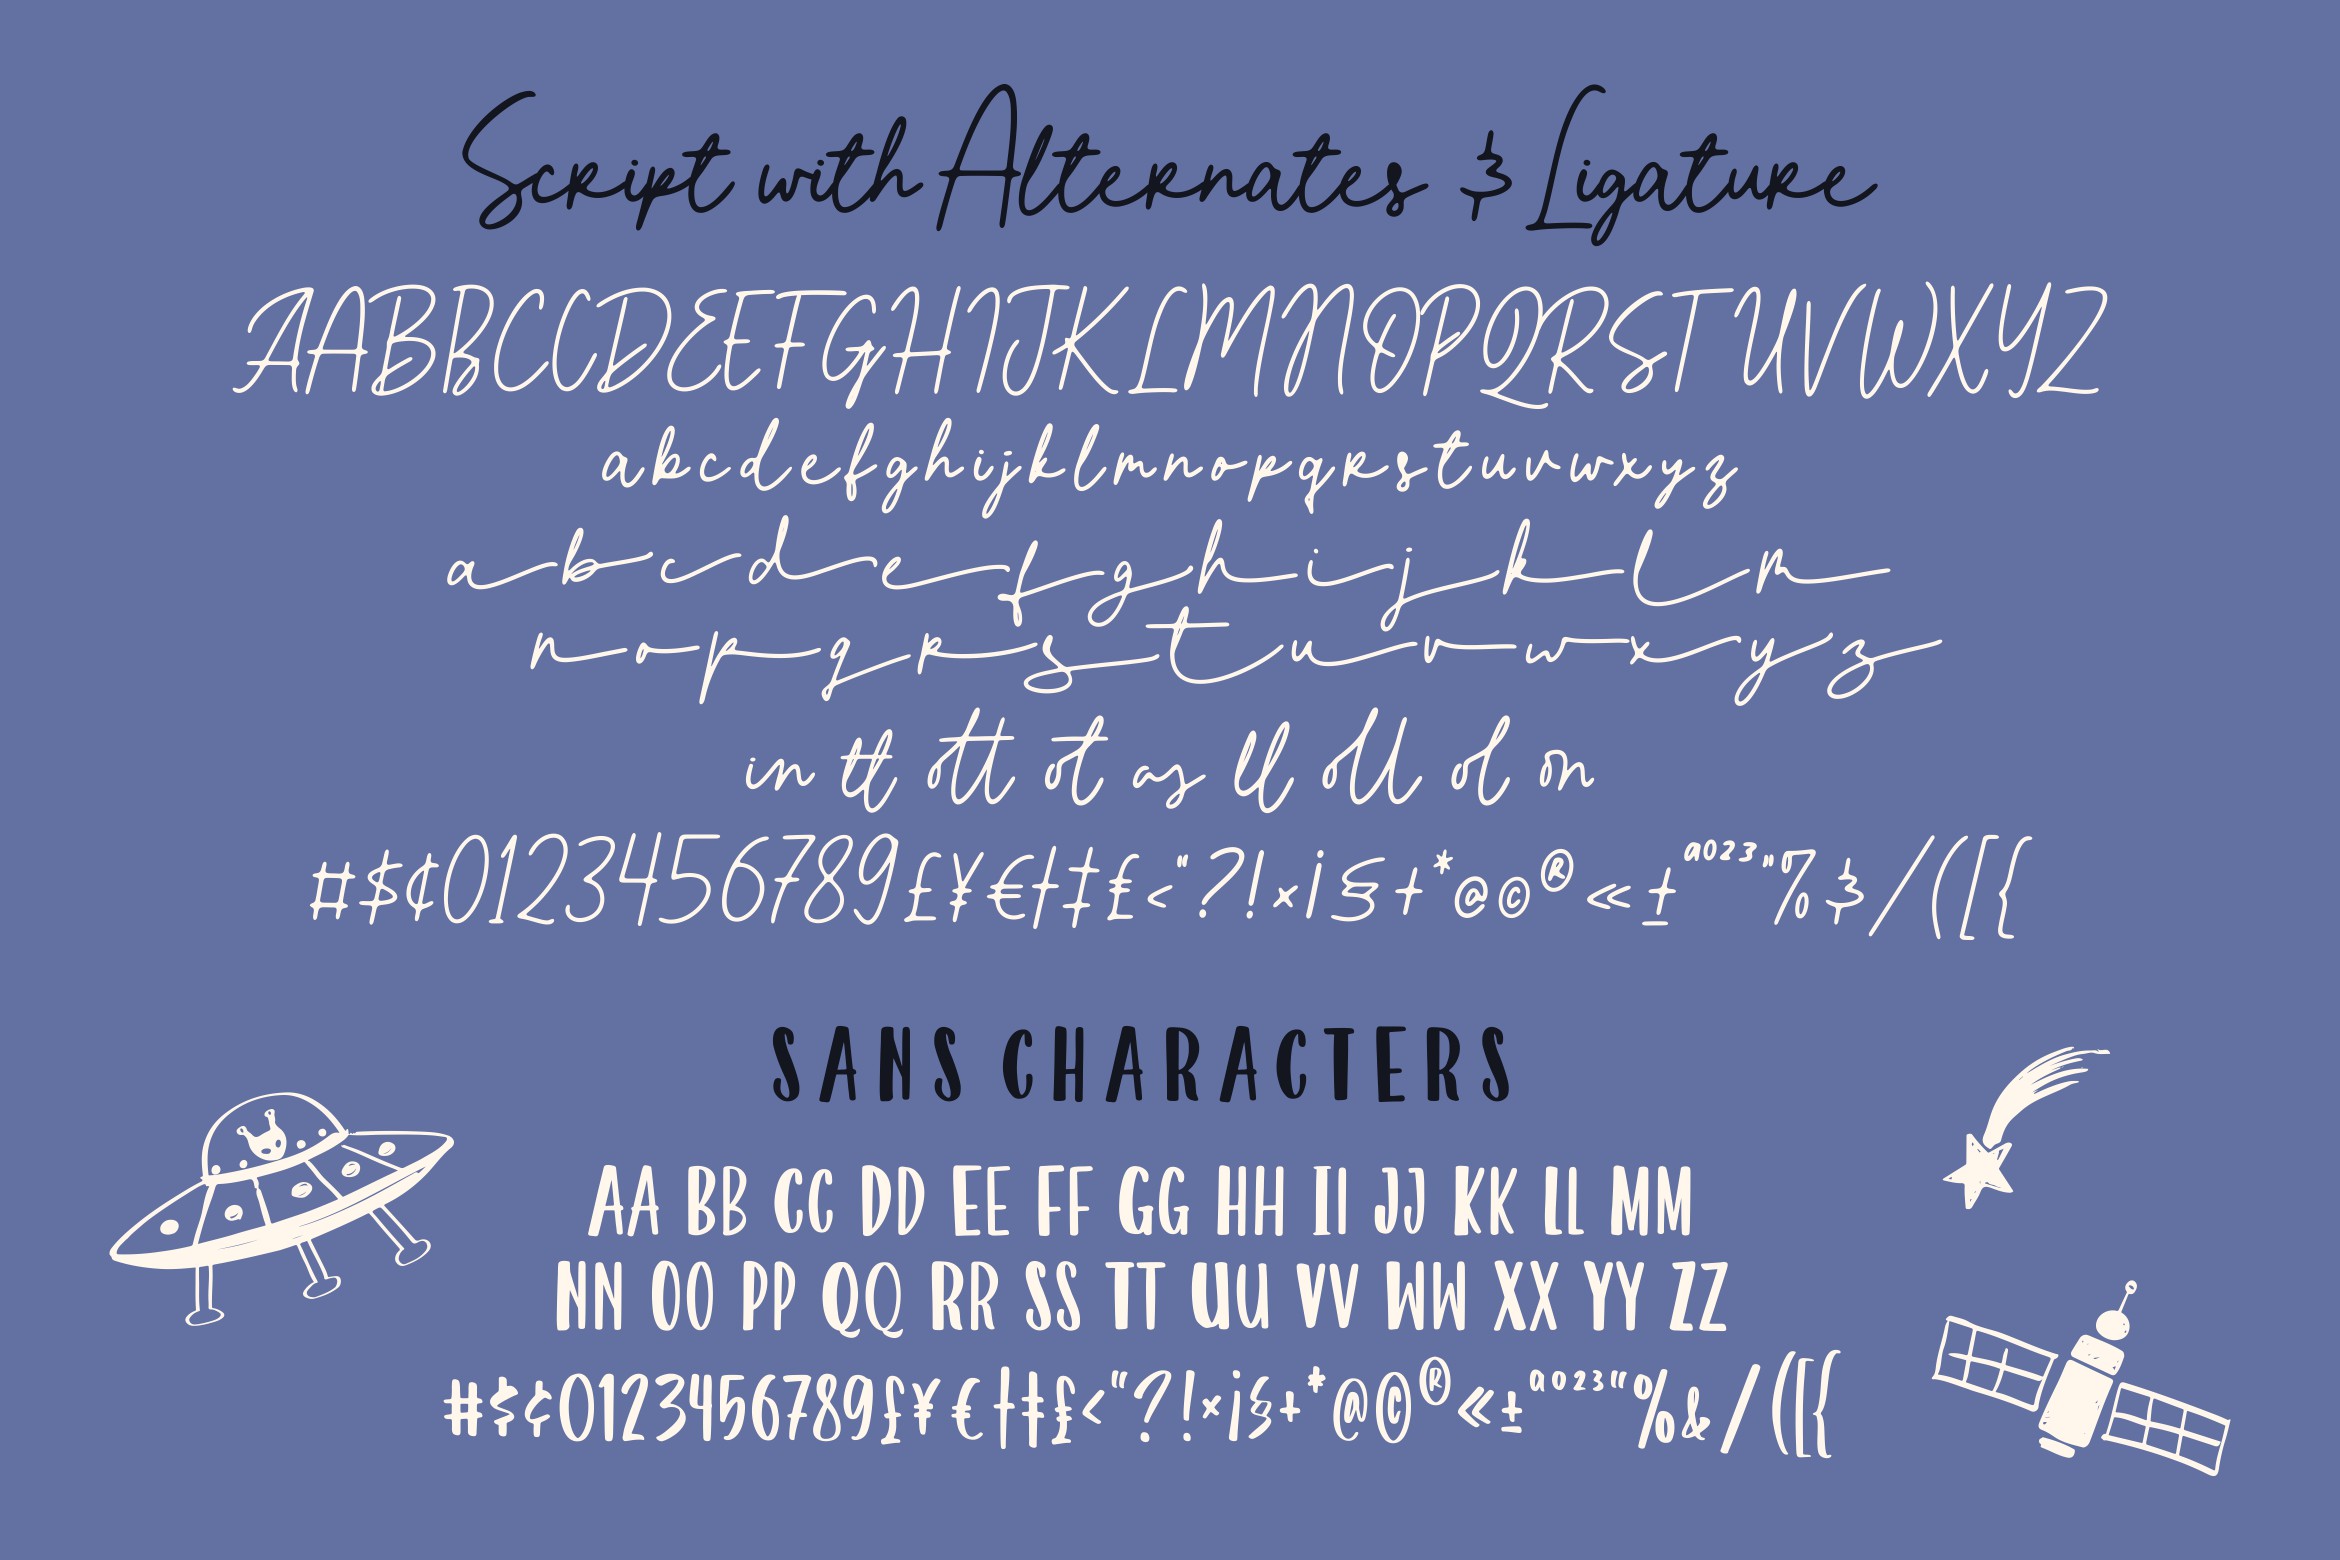 Script with Alternates & Ligature
AABBCCDEEFGHIJKLMMOPQRSTUVWXYZ
abcdefghijkllmnopqrstuvwxyz
abcdefghijklm
nopqrstuvwxyz
in tt ott ot as ll oll ol on
#$¢0123456789£¥€ƒ‡£<"?!×¡§+*@©®«±ªº²³"'°%&/([{
SANS CHARACTERS
AA BB CC DD EE FF GG HH II JJ KK LL MM
NN OO PP QQ RR SS TT UU VV WW XX YY ZZ
#$¢0123456789£¥€†‡£<"?!×¡§+*@©®«±ªº²³"'%&/([{